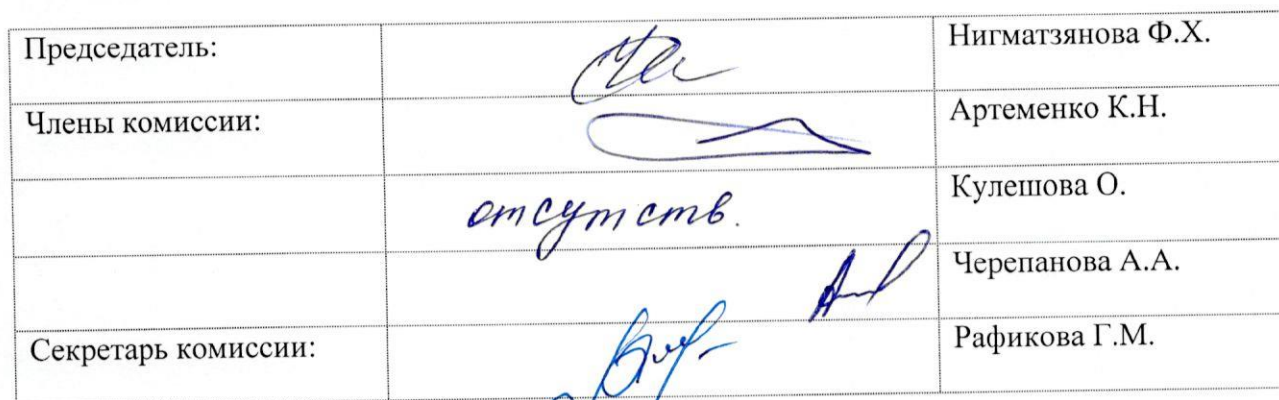 Председатель: Нигматзянова Ф.Х.
Члены комиссии: Артеменко К.Н.
отсутств. Кулешова О.
Черепанова А.А.
Секретарь комиссии: Рафикова Г.М.